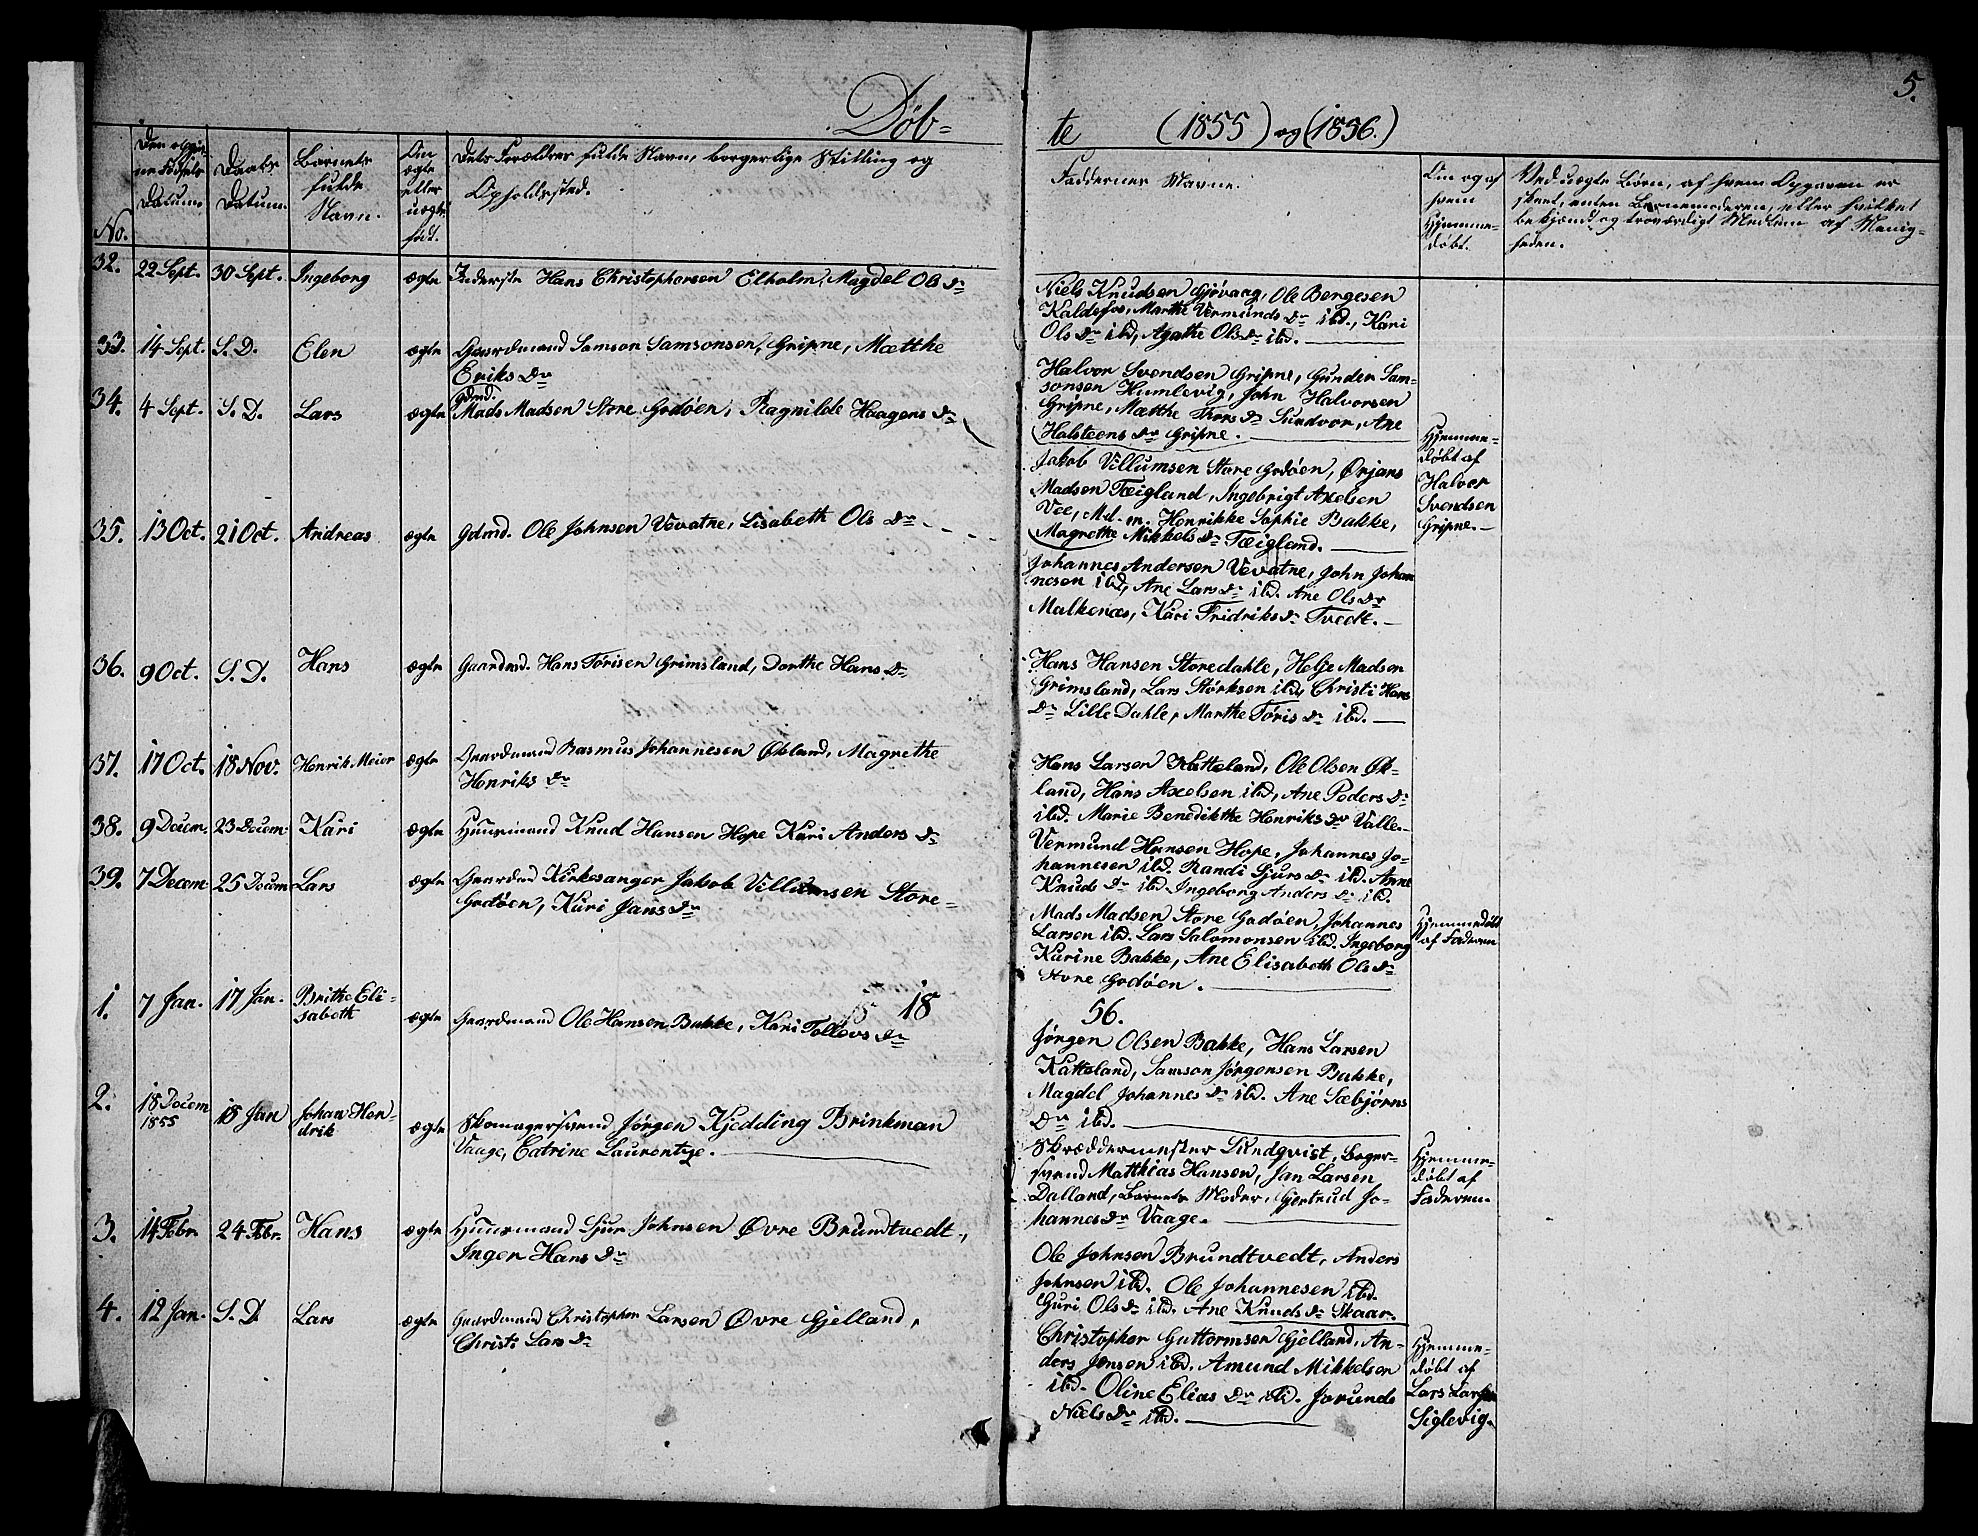 5.
Døb-
te (1855) og (1856.)
No.
Datum.
Daabs
Datum.
Barnets
fulde
Navn.
Om
ægte
eller
uægte
født.
Dets Forældres fulde Navn, borgerlige Stilling og
Opholdssted.
Faddernes Navne.
Om og af
hvem
Hjemme-
døbt.
Ved uægte Børn, af hvem Opgaven er
skeet, enten Barnemoderen, eller hvilket
bekjendt og troværdigt Medlem af Menig-
heden.
32. 22 Sept. 30 Sept. Ingeborg ægte Inderste Hans Christophersen Elholm, Magdel Ols Dr
Niels Knudsen Gjøvaag, Ole Bergesen
Kaldefos, Marthe Vermunds Dr ibd., Kari
Ols Dr ibd, Agathe Ols Dr ibd.
33. 14 Sept. S. D. Elen ægte Gaardmand Samson Samsonsen, Gripne, Mætthe
Eriks Dr
Halvor Svendsen Gripne, Gunder Sam-
sonsen Humlevig, John Halvorsen
Gripne, Mætthe Thors Dr Sundvor, Ane
Halsteens Dr Gripne.
34. 4 Sept. S. D. Lars ægte Gdmd. Mads Madsen Store Godøen, Ragnilde Haagens Dr
Jakob Villumsen Store Godøen, Ørjans
Madsen Tæigland, Ingebrigt Axelsen
Vee, Md. m. Henrikke Sophie Bakke,
Magrethe Mikkels Dr Tæigland.
Hjemme-
døbt af
Halvor
Svendsen
Gripne.
35. 13 Oct. 21 Oct. Andreas ægte Gdmd. Ole Johnsen Vevatne, Lisabeth Ols Dr
Johannes Andersen Vevatne, John Johan
nesen ibd, Ane Lars Dr ibd. Ane Ols Dr
Malkenæs, Kari Fridriks Dr Tvedt.
36. 9 Oct. S. D. Hans ægte Gaardmd. Hans Tørisen Grimsland, Dorthe Hans Dr
Hans Hansen Storedahle, Helje Madsen
Grimsland, Lars Størksen ibd, Christi Hans
Dr Lille Dahle, Marthe Tøris Dr ibd.
37. 17 Oct. 18 Nov. Henrik Meier ægte Gaardmand Rasmus Johannesen Økland, Magrethe
Henriks Dr
Hans Larsen Katteland, Ole Olsen Øk-
land, Hans Axelsen ibd, Ane Peders Dr
ibd. Marie Benedikthe Henriks Dr Valle.
38. 9 Decem. 23 Decem. Kari ægte Huusmand Knud Hansen Hope Kari Anders Dr
Vermund Hansen Hope, Johannes Jo-
hannesen ibd. Randi Sjurs Dr ibd. Anne
Knuds Dr ibd. Ingeborg Anders Dr ibd.
39. 7 Decem 25 Decem Lars ægte Gaardmd Kirkesanger Jakob Villumsen Store-
Godøen, Kari Jans Dr
Mads Madsen Store Godøen, Johannes
Larsen ibd. Lars Salomonsen ibd. Ingeborg
Karine Bakke, Ane Elisabeth Ols Dr
Store Godøen.
Hjemmedøbt
af Faderen
18
56.
1. 7 Jan. 17 Jan. Brithe Eli-
sabeth ægte Gaardmand Ole Hansen Bakke, Kari Tollevs Dr
Jørgen Olsen Bakke, Hans Larsen
Katteland, Samson Jørgensen Bakke,
Magdel Johannes Dr ibd. Ane Sæbjørns
Dr ibd.
2. 18 Decem 1855 18 Jan Johan Hen-
drik ægte Skomagersvend Jørgen Kjedding Brinkman
Vaage, Catrine Laurentze.
Skræddermester Lundqvist, Bager-
svend Matthias Hansen, Jan Larsen
Dalland, Barnets Moder, Gjertrud Jo-
hannes Dr Vaage.
Hjemme-
døbt af
Faderen.
3. 14 Febr 24 Febr. Hans ægte Huusmand Sjur Johnsen Øvre Brundtvedt,
Inger Hans Dr
Ole Johnsen Brundtvedt, Anders
Johnsen ibd. Ole Johannesen ibd.
Guri Ols Dr ibd. Ane Knuds Dr Skaar.
4. 12 Jan. S. D Lars ægte Gaardmand Christopher Larsen Øvre Gjelland,
Christi Lars Dr
Christopher Guttormsen Gjelland, An-
ders Jensen ibd. Amund Mikkelsen
ibd. Oline Elias Dr ibd. Jorunde
Niels Dr ibd.
Hjemme-
døbt af
Lars Larsen
Siglevig.